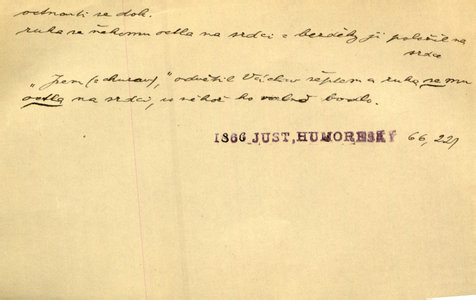 octnouti se dok.
ruka se někomu octla na srdci = bezděky ji položil na
srdce
„Jsem (churav)," odvětil Václav šeptem a ruka se mu
octla na srdci, v něhož ho bodlo.
1866 JUST, HUMORESKY 66, 221